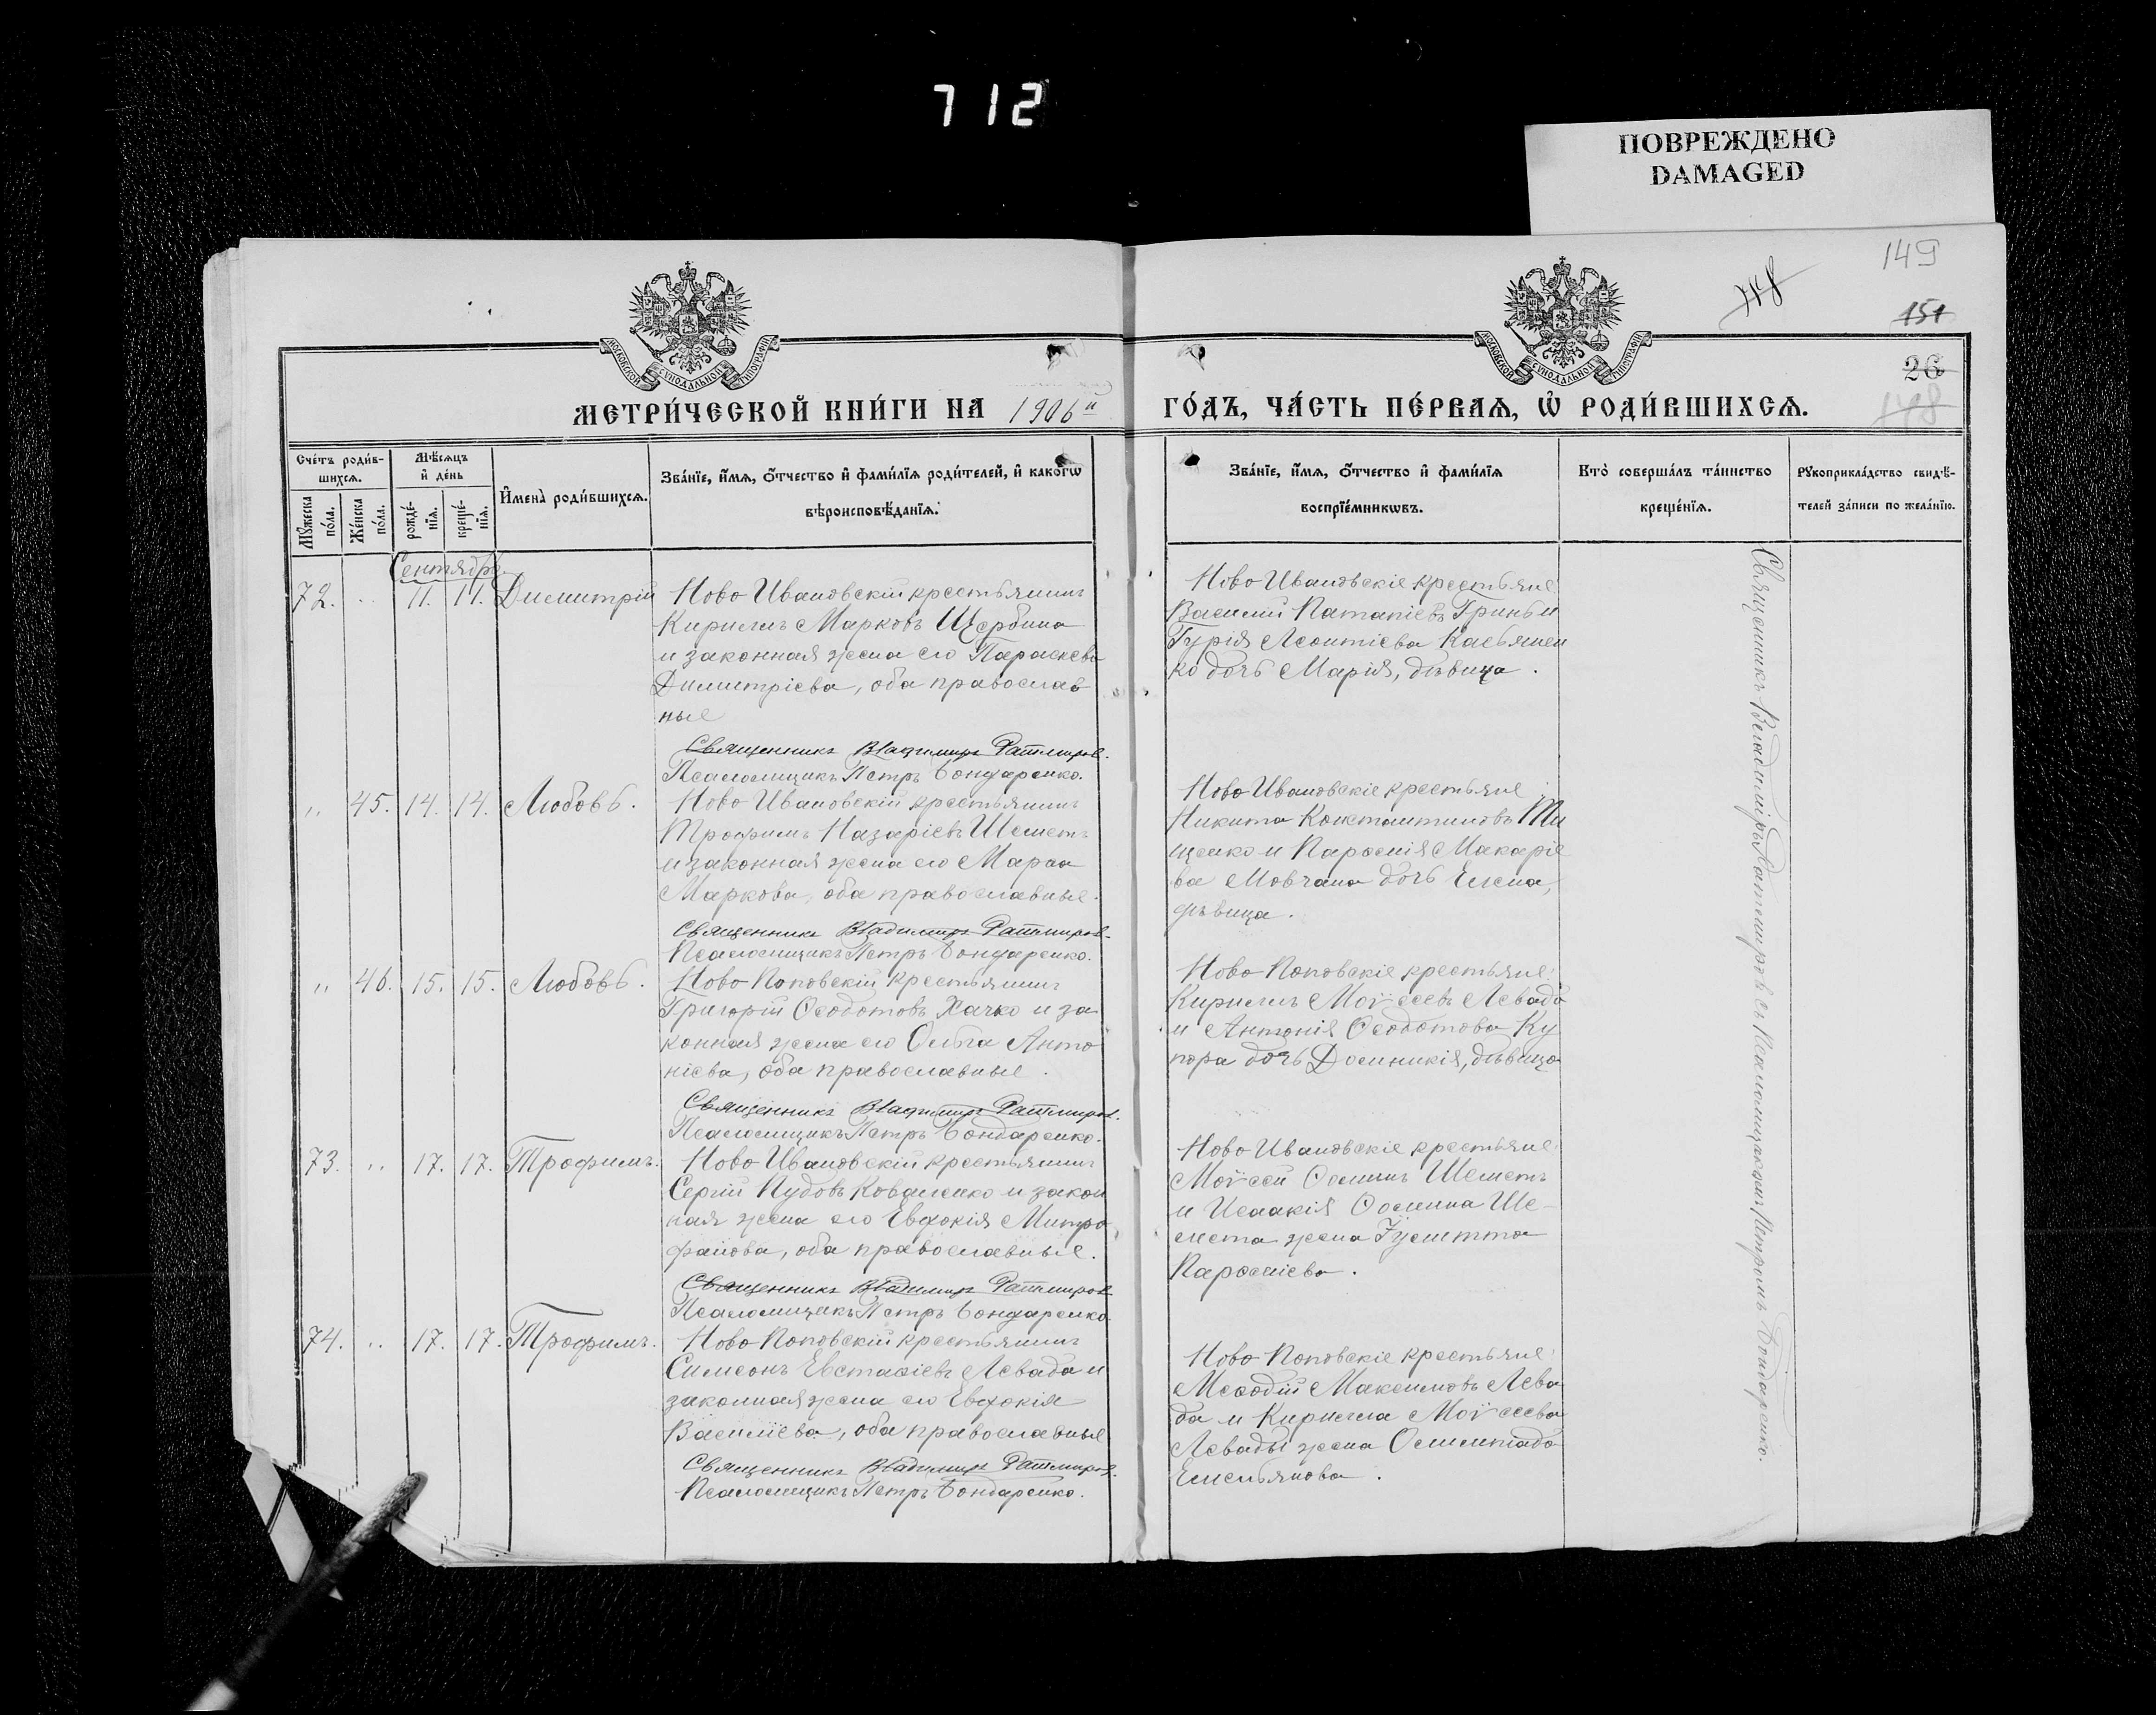 712
ПОВРЕЖДЕНО
DAMAGED
149
151
26
148
МОСКОВСКОЙ СѴНОДАЛЬНОЙ ТИПОГРАФІИ
МОСКОВСКОЙ СѴНОДАЛЬНОЙ ТИПОГРАФІИ
МЕТРИ́ЧЕСКОЙ КНИ́ГИ НА 1906й
ГО́ДЪ, ЧА́СТЬ ПЕ́РВАѦ, Ѡ҆ РОДИ́ВШИХСѦ.
Сче́тъ роди́в-
шихсѧ.
Мѣ́сѧцъ
и҆ де́нь
Мꙋ́жеска
по́ла.
Же́нска
по́ла.
рожде́-
нїѧ.
креще́-
нїѧ.
И҆мена̀ роди́вшихсѧ.
Зва́нїе, и҆́мѧ, ѻ҆́тчество и҆ фами́лїѧ роди́телей, и҆ како́гѡ
вѣроисповѣ́данїѧ.
Зва́нїе, и҆́мѧ, ѻ҆́тчество и҆ фами́лїѧ
воспрїе́мникѡвъ.
Кто̀ соверша́лъ та́инство
креще́нїѧ.
Рꙋкоприкла́дство свидѣ́-
телей за́писи по жела́нїю.
Сентябрь.
72. 11. 11. Димитрій
Ново Ивановскій крестьянинъ
Кириллъ Марковъ Щербина
и законная жена его Параскева
Димитріева, оба православ
ные
Священникъ Владимиръ Ратмиров.
Псаломщикъ Петръ Бондаренко.
Ново Ивановскіе крестьяне:
Василій Патапіевъ Гринь и
Гурія Леонтіева Касьянен
ко дочь Марія, дѣвица.
" 45. 14. 14. Любовь.
Ново Ивановскій крестьянинъ
Трофимъ Назаріевъ Шеметъ
и законная жена его Марѳа
Маркова, оба православные.
Священникъ Владимиръ Ратмиров.
Псаломщикъ Петръ Бондаренко.
Ново Ивановскіе крестьяне:
Никита Константиновъ Ти
щенко и Парѳенія Макаріе
ва Мовчана дочь Елена,
дѣвица.
" 46. 15. 15. Любовь.
Ново Поповскій крестьянинъ
Григорій Ѳеодотовъ Хачко и за
конная жена его Ольга Анто
ніева, оба православные.
Священникъ Владимиръ Ратмиров.
Псаломщикъ Петръ Бондаренко.
Ново Поповскіе крестьяне:
Кириллъ Моѵсеевъ Левада
и Антонія Ѳеодотова Ку
пора дочь Домникія, дѣвица
73. " 17. 17. Трофимъ.
Ново Ивановскій крестьянинъ
Сергій Пудовъ Коваленко и закон
ная жена его Евдокія Митро
фанова, оба православные.
Священникъ Владимиръ Ратмиров
Псаломщикъ Петръ Бондаренко
Ново Ивановскіе крестьяне:
Моѵсей Ѳоминъ Шеметъ
и Исаакія Ѳомина Ше-
мета жена Іулитта
Парѳеніева.
74. " 17. 17. Трофимъ.
Ново Поповскій крестьянинъ
Симеонъ Евстаѳіевъ Левада и
законная жена его Евдокія
Василіева, оба православные
Священникъ Владимиръ Ратмиров.
Псаломщикъ Петръ Бондаренко.
Ново Поповскіе крестьяне:
Меѳодій Максимовъ Лева
да и Кирилла Моѵсеева
Левады жена
Емельянова.
Священникъ Владиміръ Ратмировъ съ Псаломщикомъ Петромъ Бондаренко.